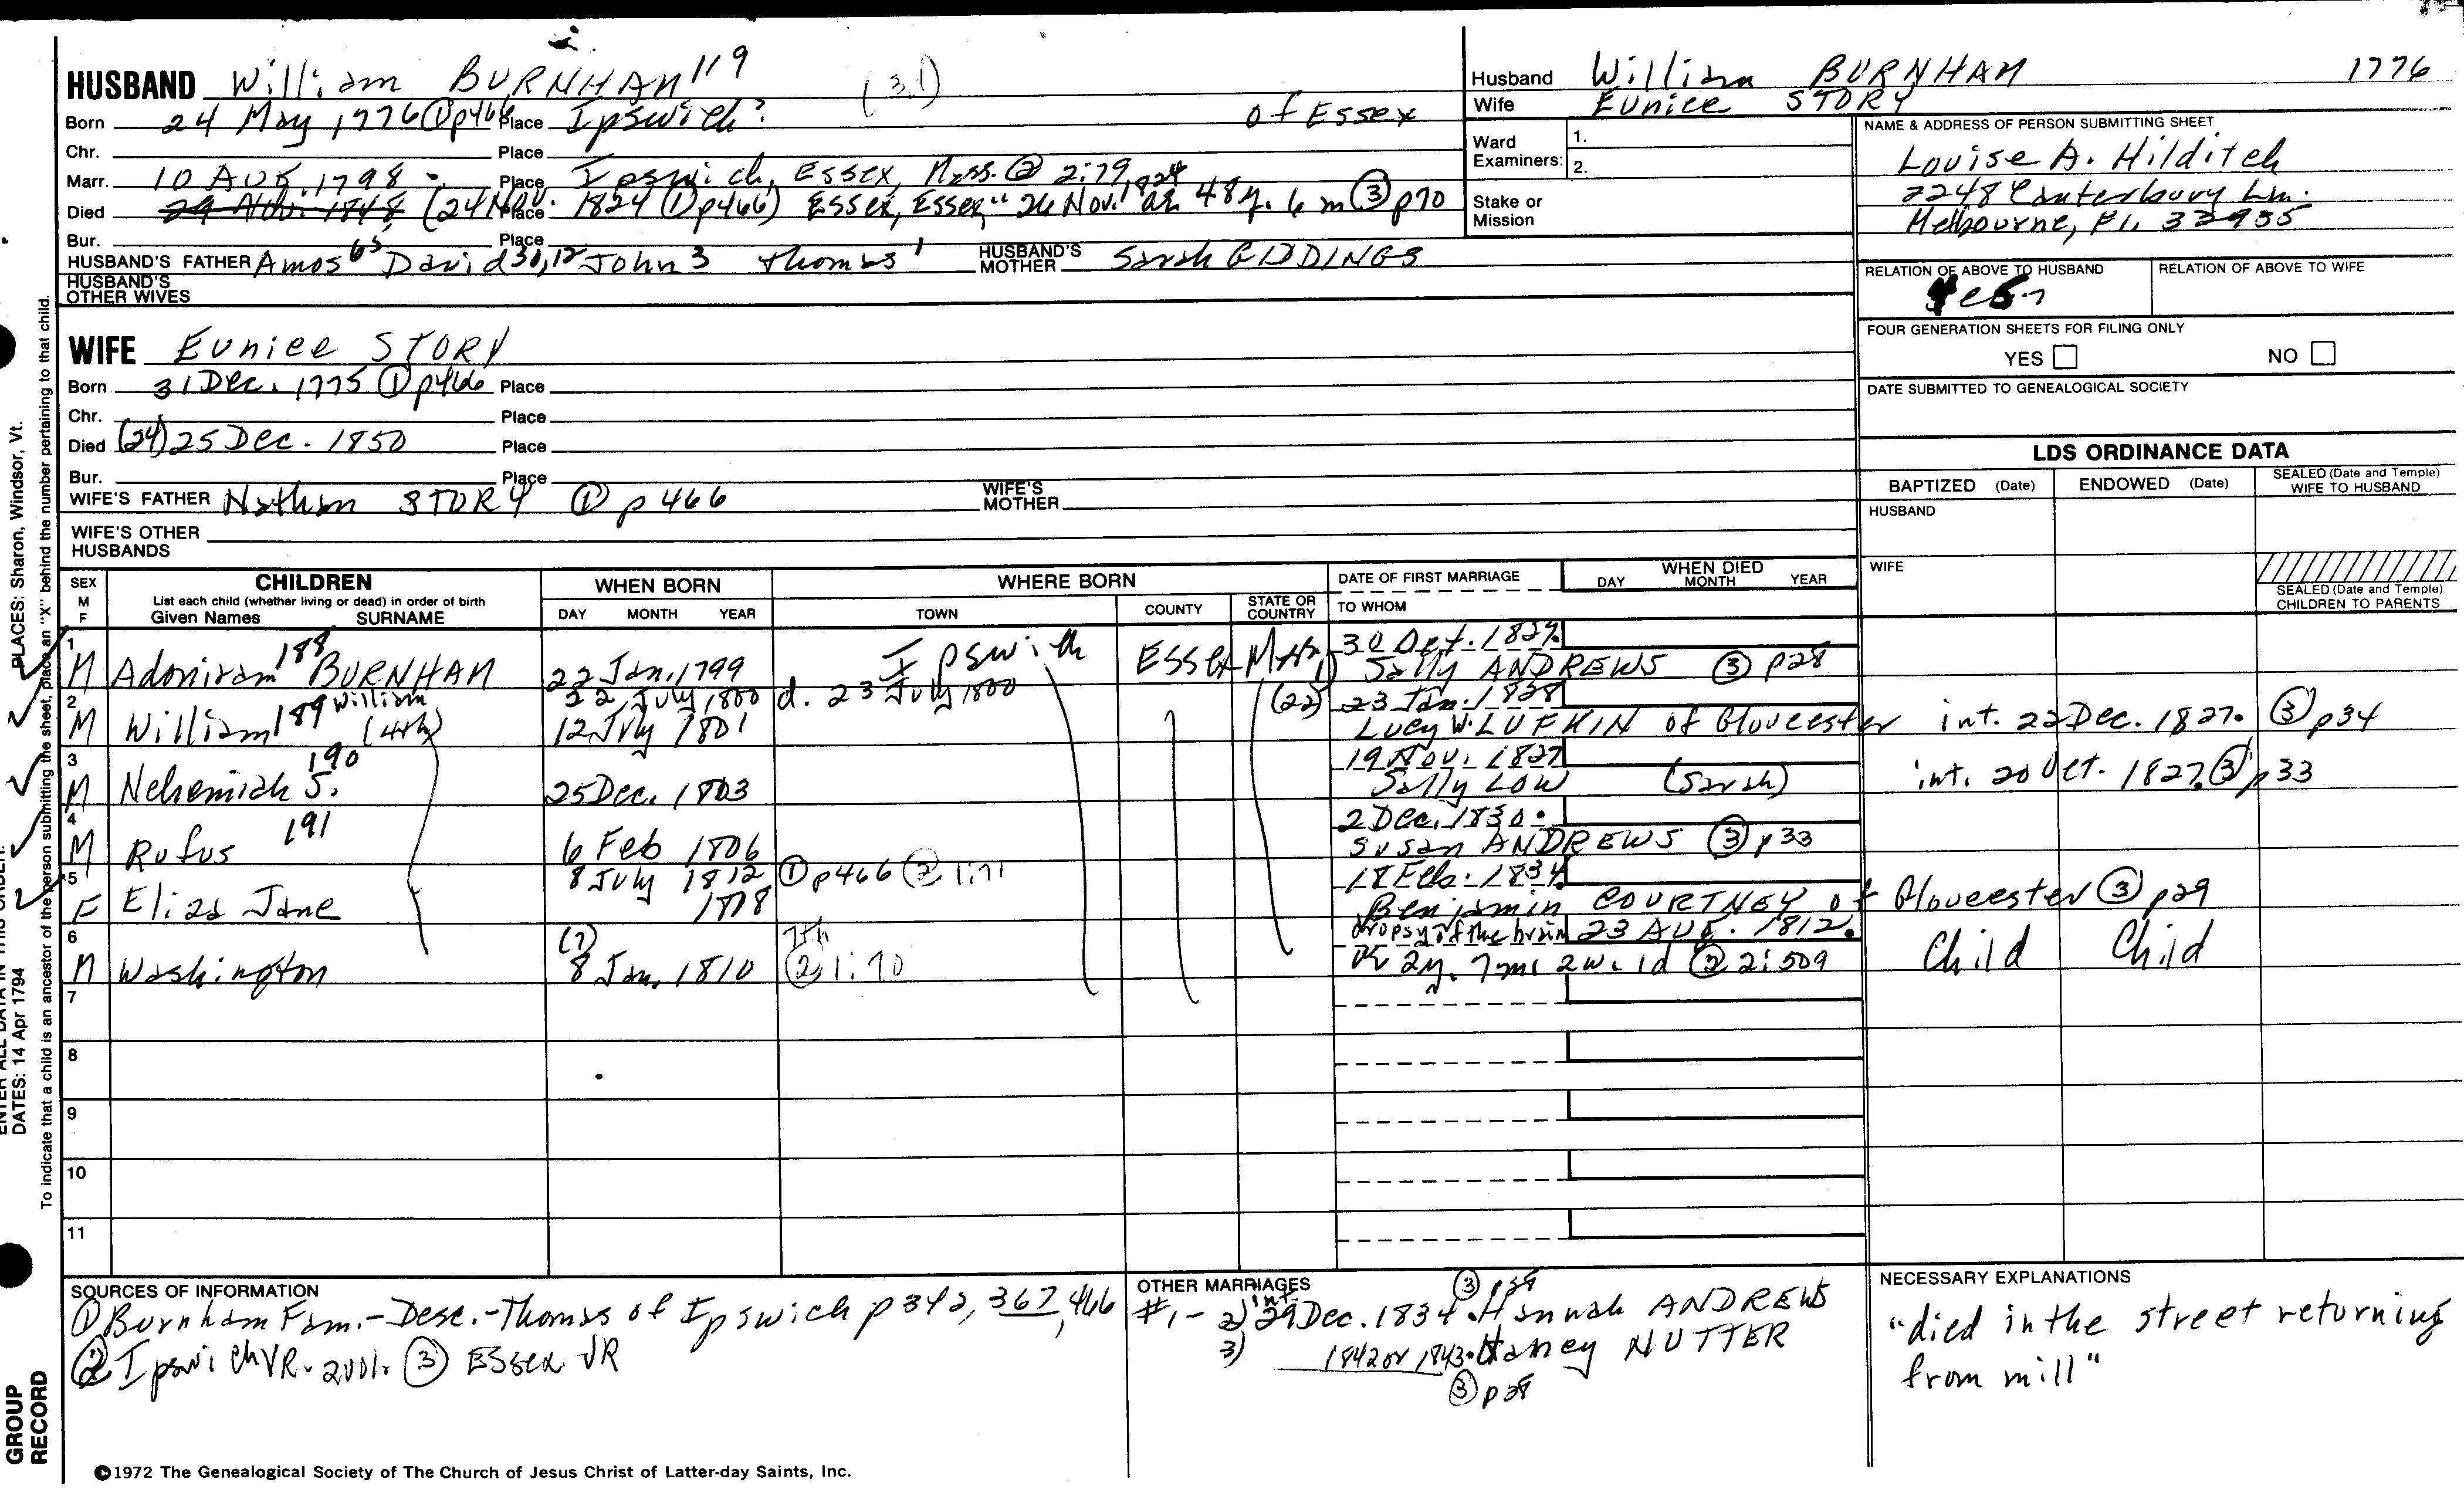 HUSBAND William BURNHAM 119 (31)
Born 24 May 1776 ① p466 Place Ipswich? of Essex
Chr. Place
Marr. 10 Aug. 1798 Place Ipswich, Essex, Mass. ② 2:79
Died 24 Nov. 1848 (24 Nov. Place 1824 ① p466) Essex, Essex, "26 Nov. 1824 ae 48y. 6m ③ p70
Bur. Place
HUSBAND'S FATHER Amos 65, David 30, 12 John 3 Thomas 1 HUSBAND'S MOTHER Sarah GIDDINGS
HUSBAND'S OTHER WIVES
WIFE Eunice STORY
Born 31 Dec. 1775 ① p466 Place
Chr. Place
Died (24) 25 Dec. 1850 Place
Bur. Place
WIFE'S FATHER Nathan STORY ① p 466 WIFE'S MOTHER
WIFE'S OTHER HUSBANDS
Husband William BURNHAM 1776
Wife Eunice STORY
Ward Examiners: 1. 2.
Stake or Mission
NAME & ADDRESS OF PERSON SUBMITTING SHEET
Louise A. Hilditch
2248 Canterbury Ln.
Melbourne, Fl. 32935
RELATION OF ABOVE TO HUSBAND RELATION OF ABOVE TO WIFE
FOUR GENERATION SHEETS FOR FILING ONLY
YES NO
DATE SUBMITTED TO GENEALOGICAL SOCIETY
LDS ORDINANCE DATA
BAPTIZED (Date) ENDOWED (Date) SEALED (Date and Temple) WIFE TO HUSBAND
HUSBAND
WIFE
SEALED (Date and Temple) CHILDREN TO PARENTS
SEX M F CHILDREN WHEN BORN WHERE BORN DATE OF FIRST MARRIAGE WHEN DIED
List each child (whether living or dead) in order of birth DAY MONTH YEAR
Given Names SURNAME DAY MONTH YEAR TOWN COUNTY STATE OR COUNTRY TO WHOM
1 188 30 Oct. 1827.
M Adoniram BURNHAM 22 Jan. 1799 Ipswich Essex 1) Sally ANDREWS ③ p28
2 William 22 July 1800 d. 23 July 1800 (22) 23 Jan. 1828
M William 189 (4th) 12 July 1801 Lucy W. LUFKIN of Gloucester int. 22 Dec. 1827. ③ p34
3 190 19 Nov. 1827
M Nehemiah S. 25 Dec. 1803 Sally LOW (Sarah) int. 20 Oct. 1827. ③ p33
4 191 2 Dec. 1830.
M Rufus 6 Feb 1806 Susan ANDREWS ③ p33
5 8 July 1812 ① p466 ② 1:71 18 Feb. 1834
F Eliza Jane 1808 Benjamin COURTNEY of Gloucester ③ p29
6 (7) 7th dropsy of the brain 23 Aug. 1812.
M Washington 8 Jan. 1810 ② 1:70 ae 2y. 7m 2w. 1d ② 2:509 Child Child
7
8
9
10
11
SOURCES OF INFORMATION
① Burnham Fam.-Desc.-Thomas of Ipswich p 342, 367, 466
② Ipswich VR. 2vol. ③ Essex VR
OTHER MARRIAGES ③ p28
#1- 2) int. 29 Dec. 1834. Hannah ANDREWS
3) 1842 or 1843. Nancy NUTTER
③ p28
NECESSARY EXPLANATIONS
"died in the street returning
from mill"
©1972 The Genealogical Society of The Church of Jesus Christ of Latter-day Saints, Inc.
PLACES: Sharon, Windsor, Vt.
ENTER ALL DATA IN THIS ORDER:
DATES: 14 Apr 1794
To indicate that a child is an ancestor of the person submitting the sheet, place an "X" behind the number pertaining to that child.
GROUP
RECORD